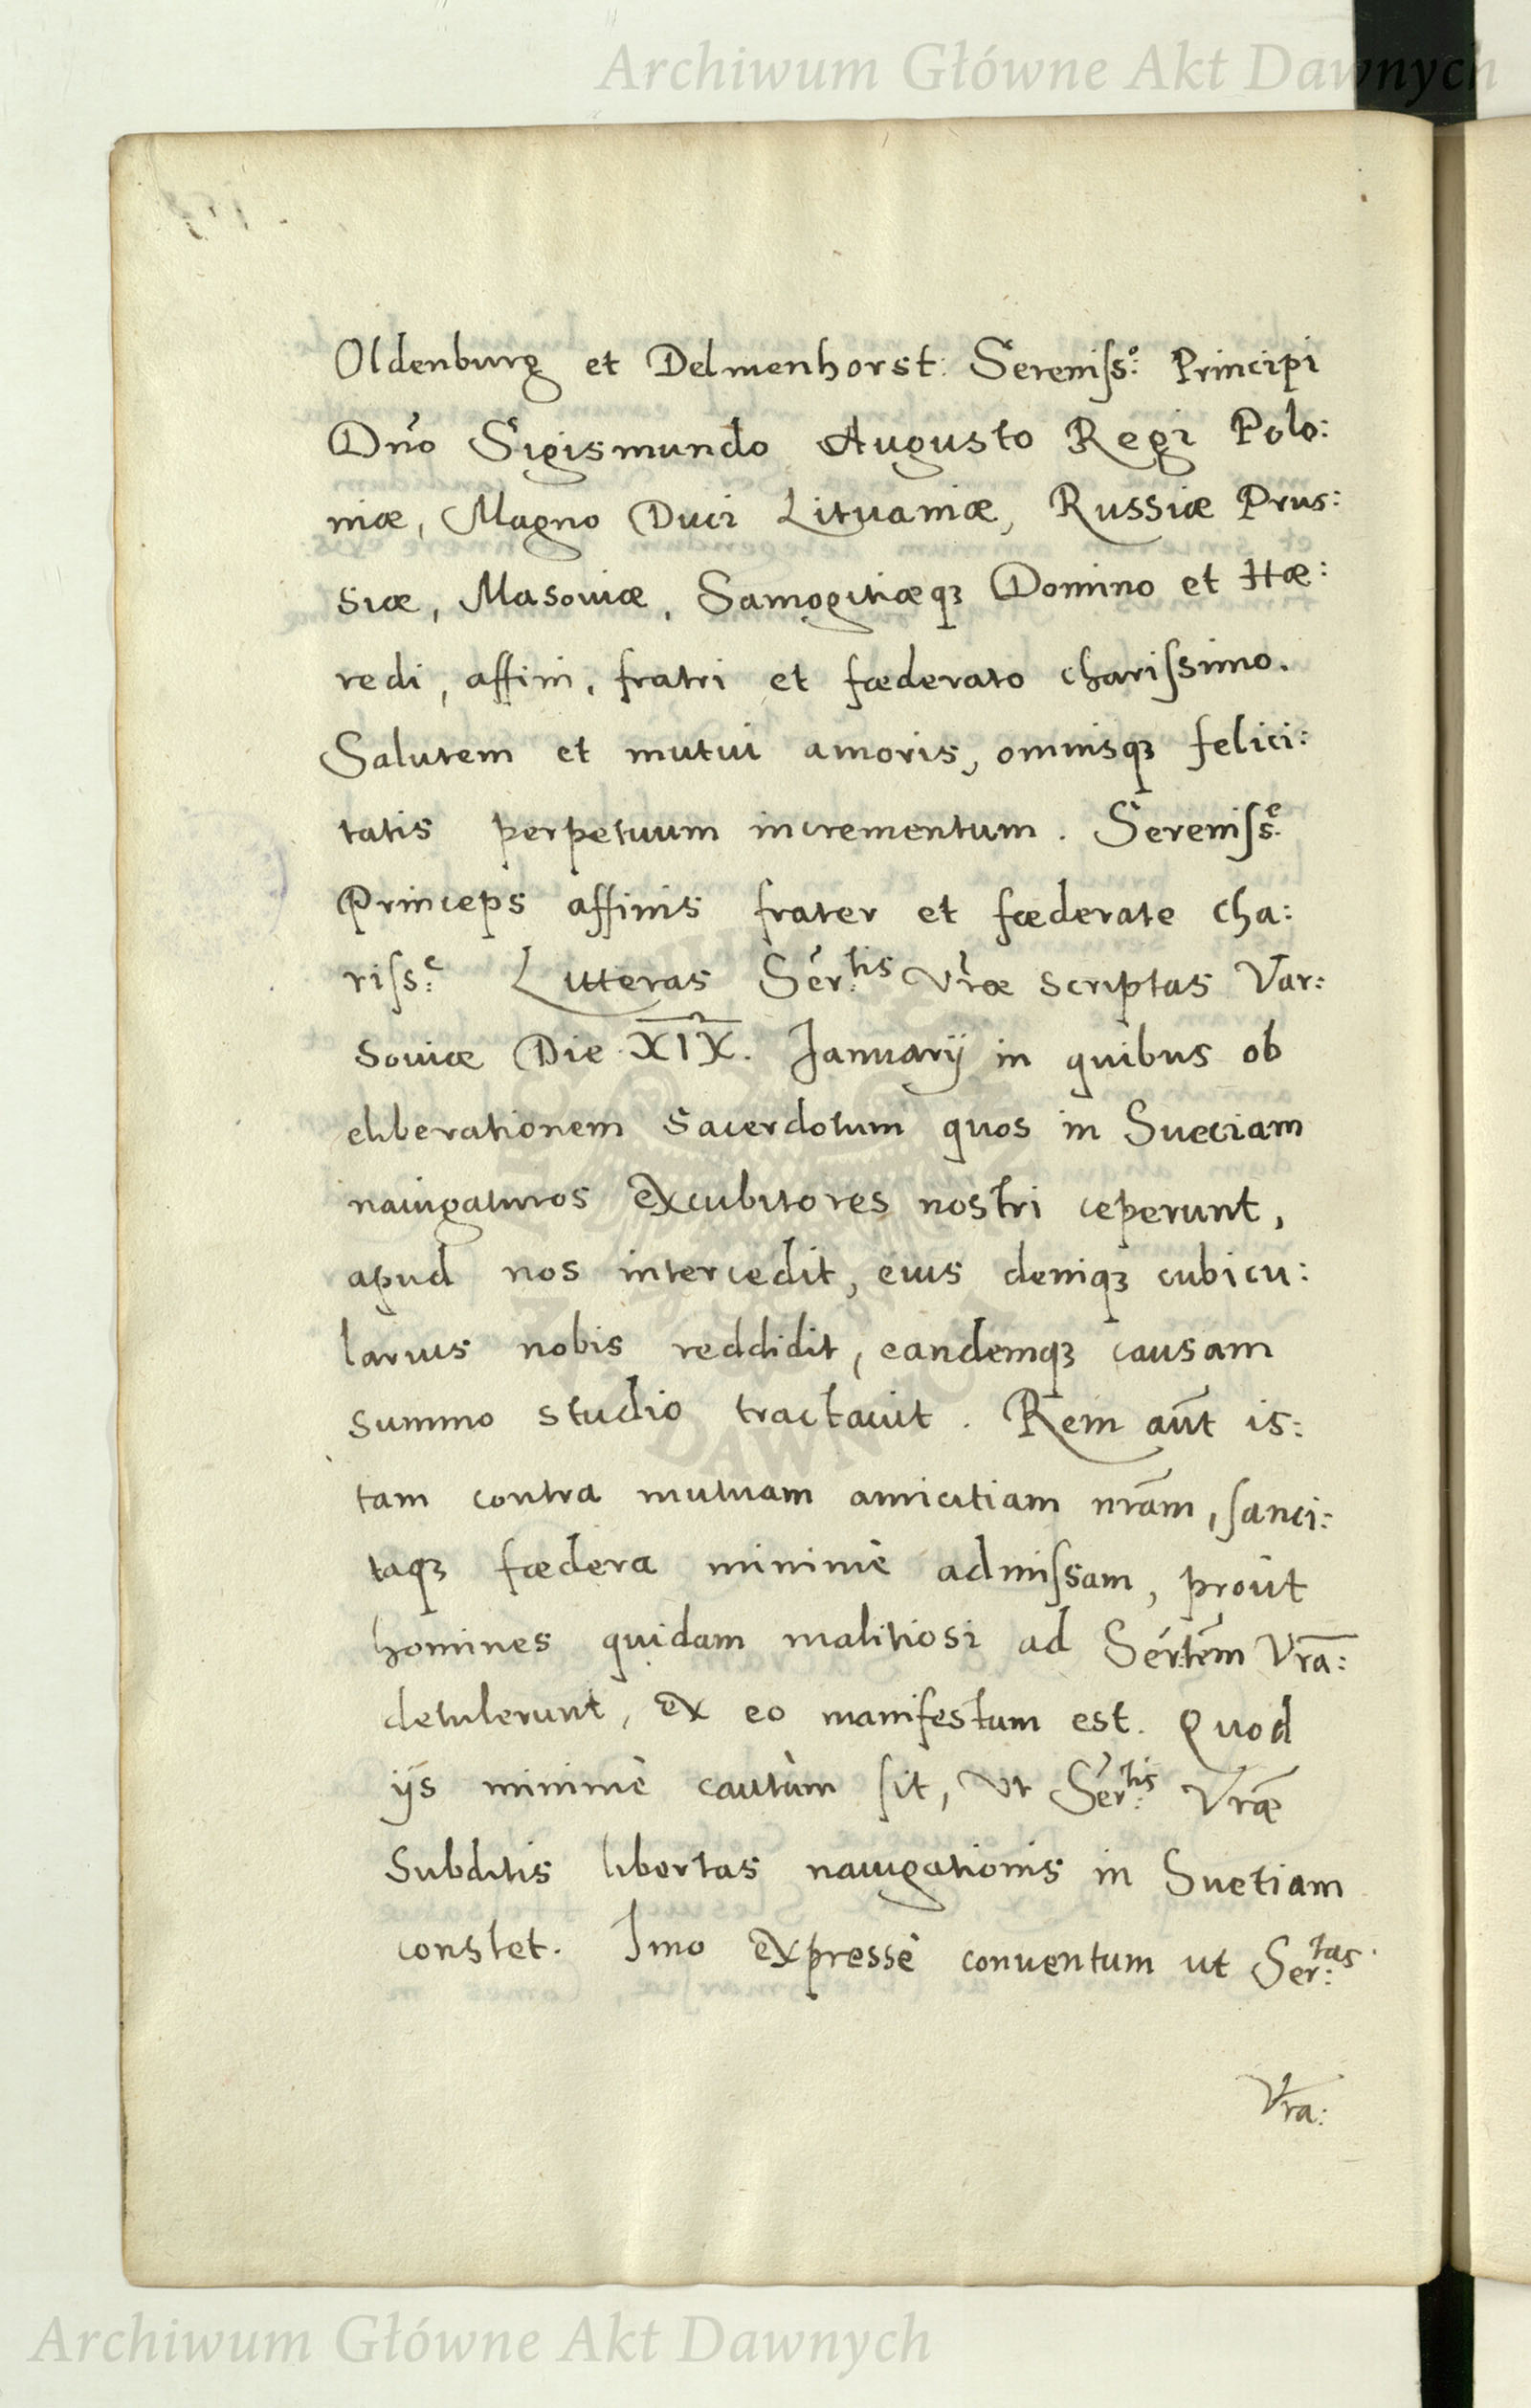 Archiwum Główne Akt Dawnych
Oldenburg et Delmenhorst: Sereniſs:º Principi
Dńo Sigismundo Augusto Regi Polo:
niæ, Magno Duci Lituaniæ, Russiæ Prus:
siæ, Masouiæ, Samogitiæqꝫ Domino et Hæ:
redi, affini, fratri et fœderato chariſsimo.
Salutem et mutui amoris, omnisqꝫ felici:
tatis perpetuum incrementum. Sereniſs:ᵉ
Princeps affinis frater et fœderate cha:
riſs:ᵉ Litteras Sér:tis Vr̃æ scriptas Var:
souiæ Die XIX. Januarij in quibus ob
eliberationem sacerdotum quos in Sueciam
nauigaturos excubitores nostri ceperunt,
apud nos intercedit, eius deniqꝫ cubicu:
larius nobis reddidit, eandemqꝫ causam
summo studio tractauit. Rem aũt is:
tam contra mutuam amicitiam nr̃am, ſanci:
taqꝫ fœdera minimè admiſsam, prout
homines quidam malitiosi ad Sértẽm Vr̃a:
detulerunt, ex eo manifestum est. Quod
ijs minimè cautùm ſit, vt Sér:tis Vr̃æ
Subditis libertas nauigationis in Suetiam
constet. Imo expressè conuentum ut Ser:tas
Vr̃a:
ARCHIWUM GŁÓWNE AKT DAWNYCH
Archiwum Główne Akt Dawnych